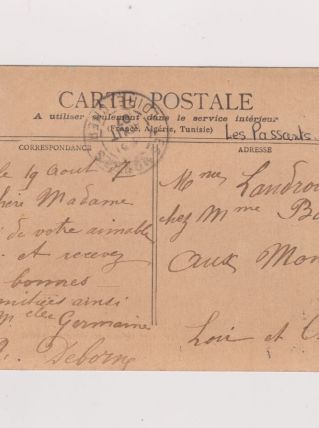 CARTE POSTALE
A utiliser seulement dans le service intérieur
(France, Algérie, Tunisie)
Les Passants.
CORRESPONDANCE
ADRESSE
le 19 Aout 7
chère Madame
de votre aimable
et recevez
bonnes
amitiés ainsi
Melle Germaine
Deborne
Mmes Landrou
chez Mme Ba
aux Mon
Loir et C